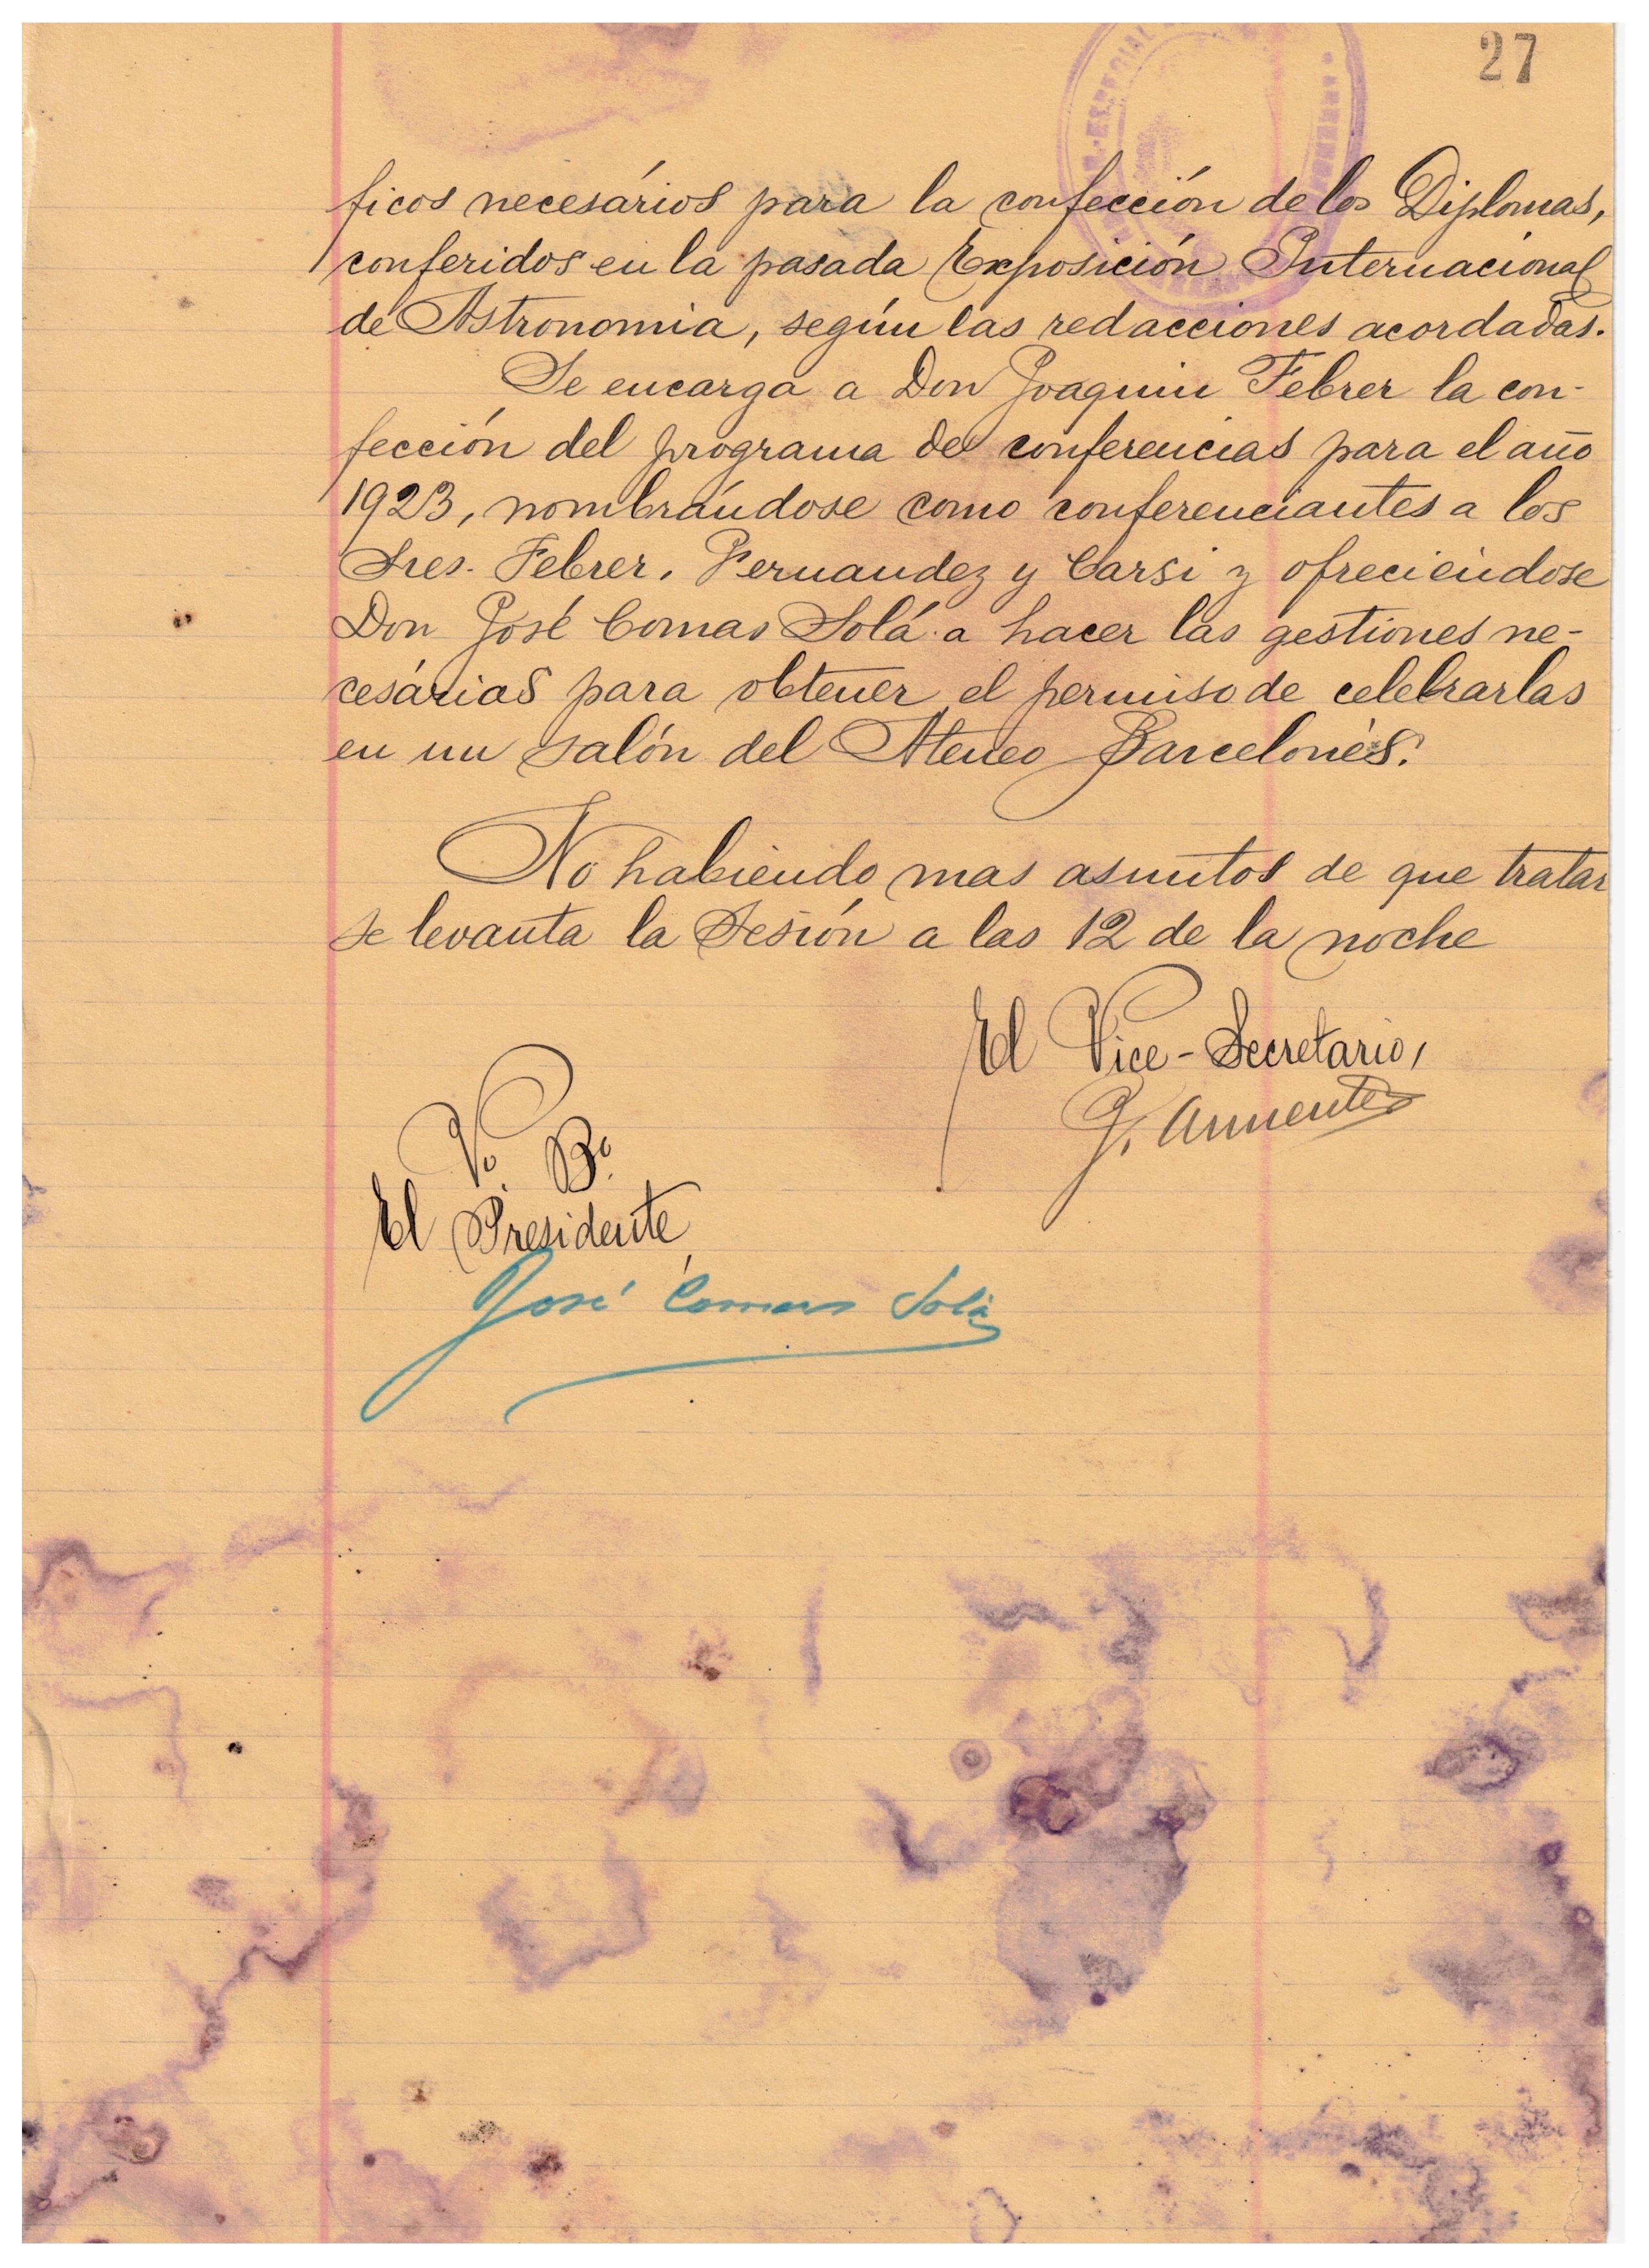 27
ficos necesários para la confección de los Diplomas,
conferidos en la pasada Exposición Internacional
de Astronomia, según las redacciones acordadas.
Se encarga a Don Joaquin Febrer la con-
fección del programa de conferencias para el año
1923, nombrándose como conferenciantes a los
Sres. Febrer, Fernandez y Carsi y ofreciéndose
Don José Comas Solá a hacer las gestiones ne-
cesárias para obtener el permiso de celebrarlas
en un salón del Ateneo Barcelonés.
No habiendo mas asuntos de que tratar
se levanta la Sesión a las 12 de la noche
El Vice-Secretario,
G. Armenter
Vº Bº
El Presidente,
José Comas Solá